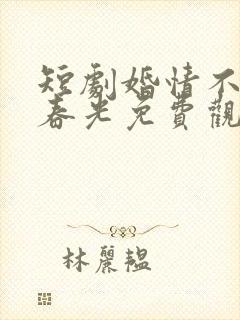 短劇婚情不
春光免費觀
林麗韞